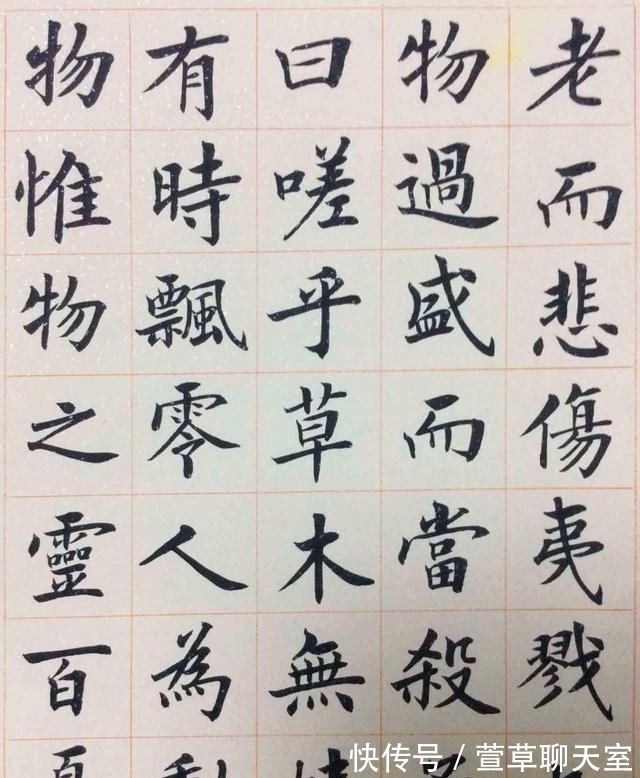 老而悲傷夷戮
物過盛而當殺
曰嗟乎草木無
有時飄零人為
物惟物之靈百
快传号 / 萱草聊天室